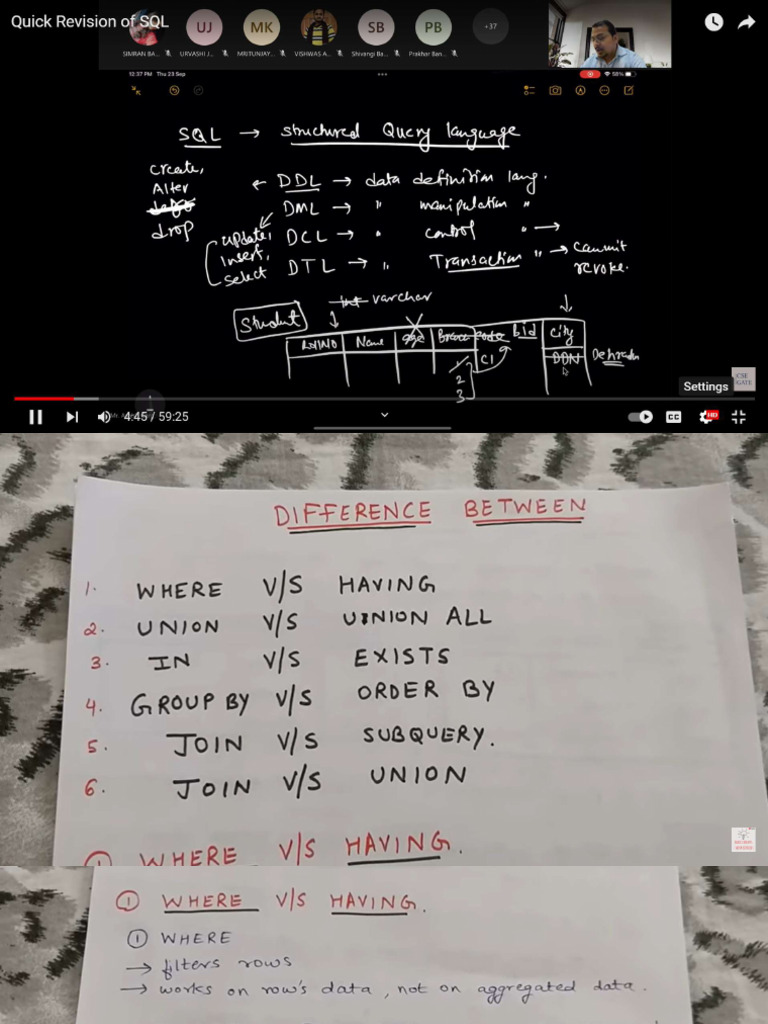 Quick Revision of SQL
UJ MK SB PB +37
SIMRAN BA... URVASHI J... MRITUNJAY... VISHWAS A... Shivangi Ba... Prakhar Ban...
12:37 PM Thu 23 Sep
58%
SQL → Structured Query language
Create,
Alter
drop
← DDL → data definition lang.
DML → " manipulation "
DCL → " control " →
DTL → " Transaction " → Commit
revoke.
update,
insert,
select
int varchar
Student
Name age Branch code bid City
C1 DDN Dehradun
1
2
3
Settings
CSE
GATE
4:45 / 59:25
CC HD
DIFFERENCE BETWEEN
1. WHERE V/S HAVING
2. UNION V/S UNION ALL
3. IN V/S EXISTS
4. GROUP BY V/S ORDER BY
5. JOIN V/S SUBQUERY.
6. JOIN V/S UNION
① WHERE V/S HAVING.
① WHERE V/S HAVING.
① WHERE
→ filters rows
→ works on row's data, not on aggregated data.